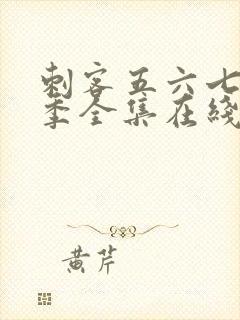 刺客五六七
季全集在线
黄芹